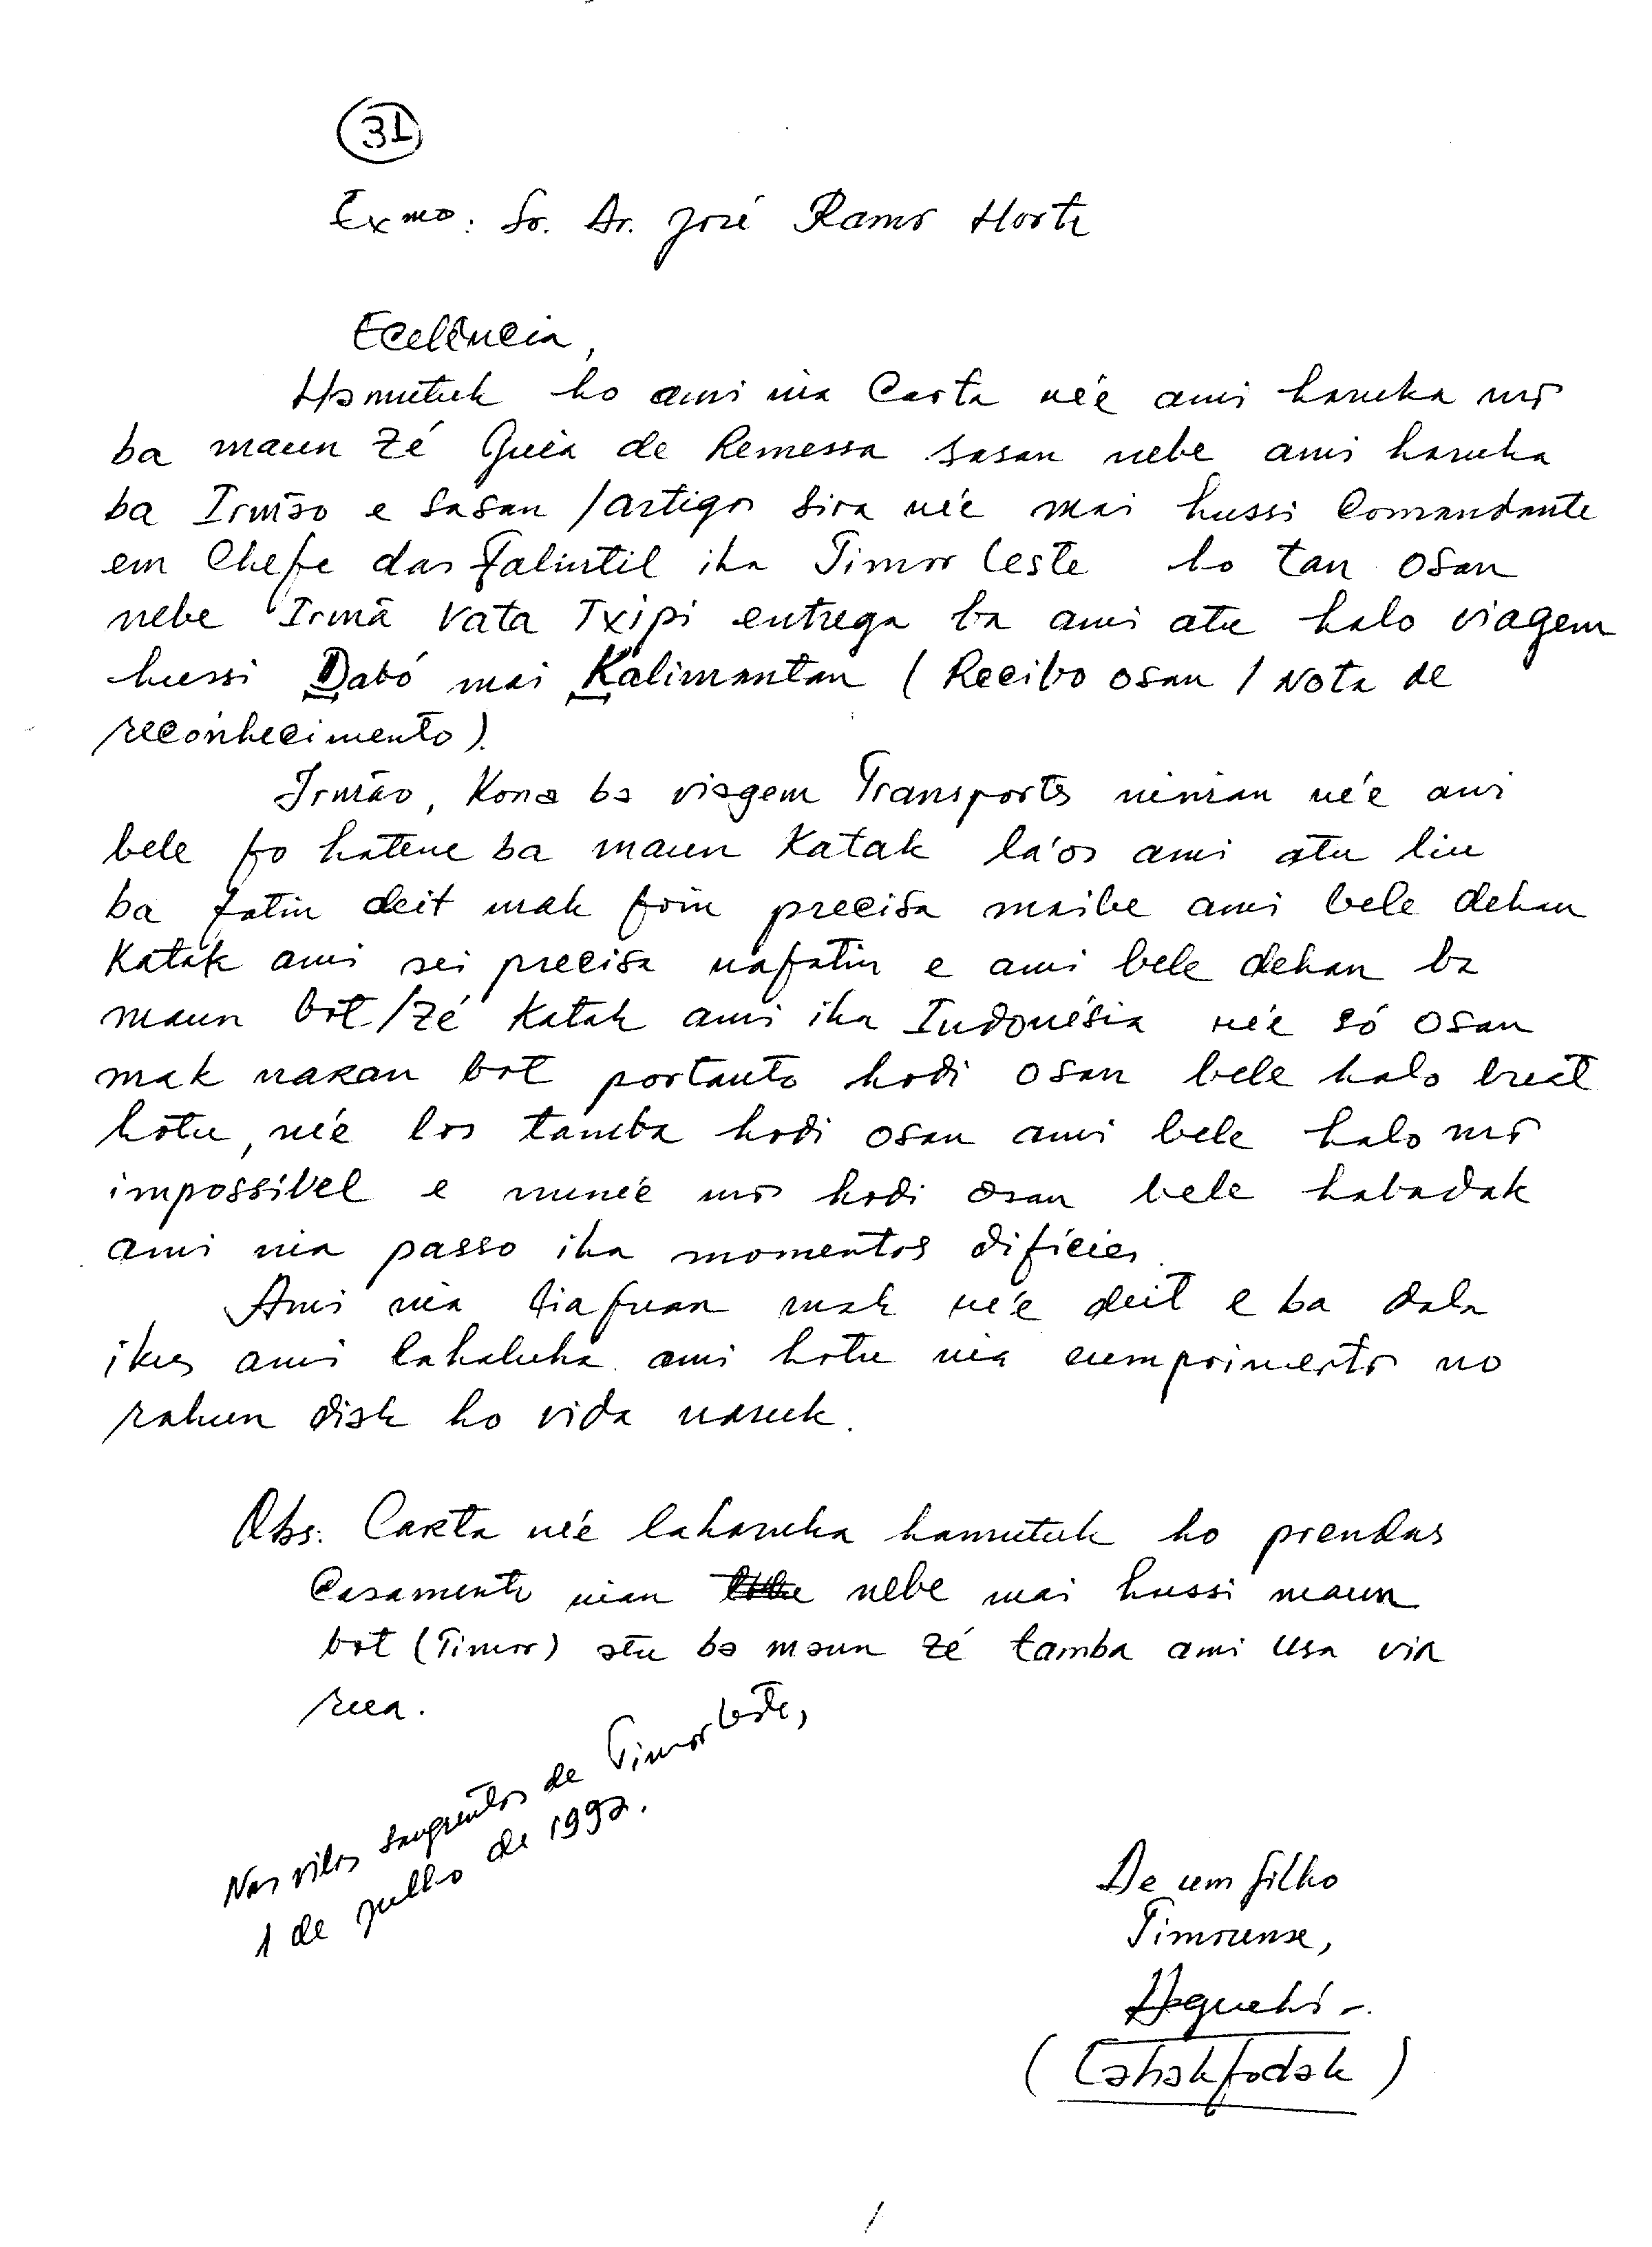 31
Exmo: Sr. Dr. José Ramos Horta
Ecelência,
Hamutuk ho ami nia Carta né'e ami haruka mós
ba maun Zé Guia de Remessa sasan nebe ami haruka
ba Irmão e sasan / artigos sira né'e mai hussi Comandante
em Chefe das Falintil iha Timor Leste ho tan osan
nebe Irmã Vata Txipi entrega ba ami atu halo viagem
hussi Dabó mai Kalimantan ( Recibo osan / Nota de
reconhecimento).
Irmão, Kona ba viagem Transportes ninian né'e ami
bele fo hatene ba maun Katak lá'os ami atu liu
ba fatin deit mak foin precisa maibe ami bele dehan
Katak ami sei precisa nafatin e ami bele dehan ba
maun bót/Zé Katak ami iha Indonésia né'e só osan
mak naran bot portanto hodi osan bele halo buat
hotu, né'e los tamba hodi osan ami bele halo mós
impossivel e nuné'e mós hodi osan bele habadak
ami nia passo iha momentos dificies.
Ami nia liafuan mak né'e deit e ba dala
ikus ami lahaluha ami hotu nia cumprimentos no
rahun diak ho vida naruk.
Obs: Carta né'e laharuka hamutuk ho prendas
Casamento nian nebe mai hussi maun
bot (Timor) atu ba maun Zé tamba ami usa via
rua.
Nas vilas sangrentos de Timor Leste,
1 de julho de 1992.
De um filho
Timorense,
( Lahakfodak )
/